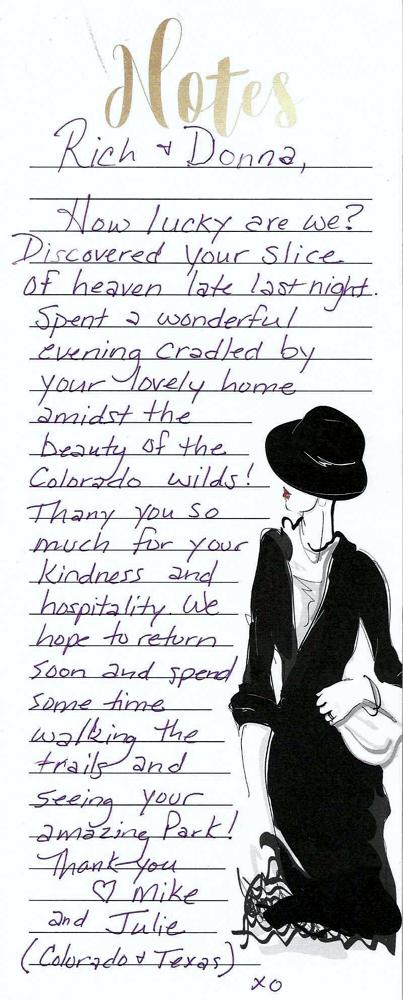 Notes
Rich & Donna,
How lucky are we?
Discovered your slice
of heaven late last night.
Spent a wonderful
evening cradled by
your lovely home
amidst the
beauty of the
Colorado wilds!
Thany you so
much for your
kindness and
hospitality. We
hope to return
soon and spend
some time
walking the
trails and
seeing your
amazing Park!
Thank you
♡ Mike
and Julie
(Colorado & Texas)
xo